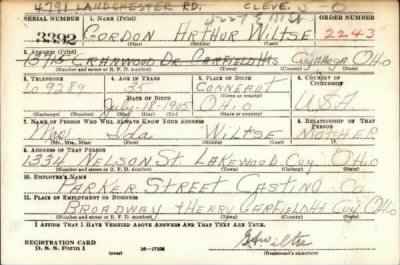 4791 LANDCHESTER RD. CLEVE.
SERIAL NUMBER 1. NAME (Print) ORDER NUMBER
3392 GORDON ARTHUR WILTSE 2243
(First) (Middle) (Last)
2. ADDRESS (Print)
13713 CRANWOOD DR GARFIELD HTS Cuyahoga OHIO
(Number and street or R. F. D. number) (Town) (County) (State)
3. TELEPHONE 4. AGE IN YEARS 5. PLACE OF BIRTH 6. COUNTRY OF CITIZENSHIP
LO 9289 35 CONNEAUT
DATE OF BIRTH (Town or county)
July-11-1905 OHIO U.S.A
(Exchange) (Number) (Mo.) (Day) (Yr.) (State or country)
7. NAME OF PERSON WHO WILL ALWAYS KNOW YOUR ADDRESS 8. RELATIONSHIP OF THAT PERSON
Mrs. Ida WILTSE MOTHER
(Mr., Mrs., Miss) (First) (Middle) (Last)
9. ADDRESS OF THAT PERSON
1334 NELSON St. LAKEWOOD. Cuy. OHIO
(Number and street or R. F. D. number) (Town) (County) (State)
10. EMPLOYER'S NAME
PARKER STREET CASTING CO
11. PLACE OF EMPLOYMENT OR BUSINESS
BROADWAY + HENRY GARFIELD HT Cuy. OHIO
(Number and street or R. F. D. number) (Town) (County) (State)
I AFFIRM THAT I HAVE VERIFIED ABOVE ANSWERS AND THAT THEY ARE TRUE.
REGISTRATION CARD
D. S. S. Form 1 16-17105 (Registrant's signature)